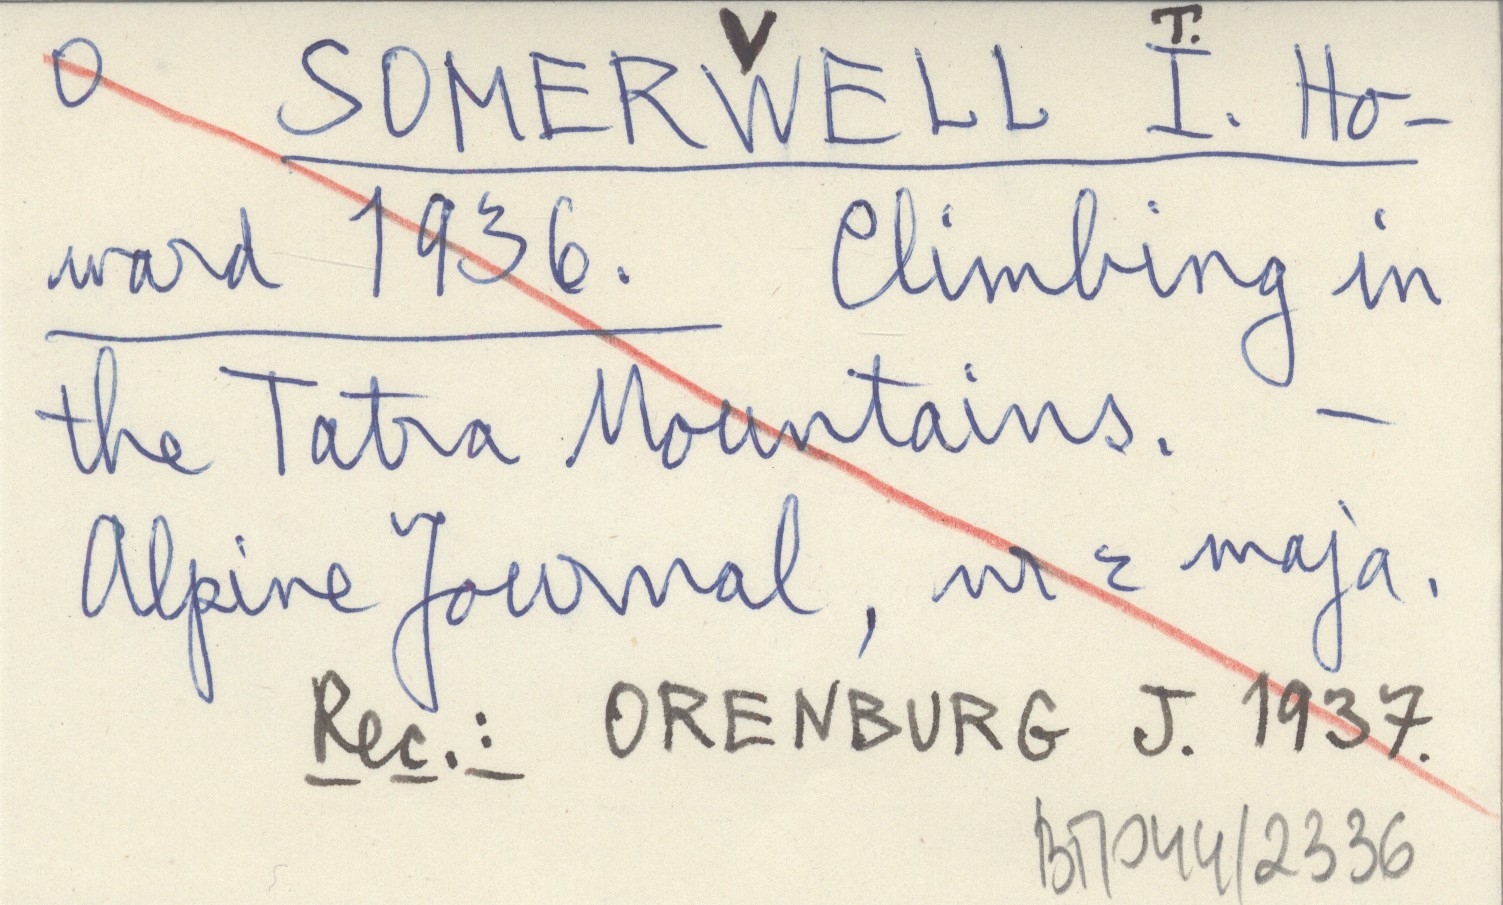 V T.
O SOMERWELL I. Ho-
ward 1936. Climbing in
the Tatra Mountains. –
Alpine Journal, nr z maja.
Rec.: ORENBURG J. 1937.
044/2336